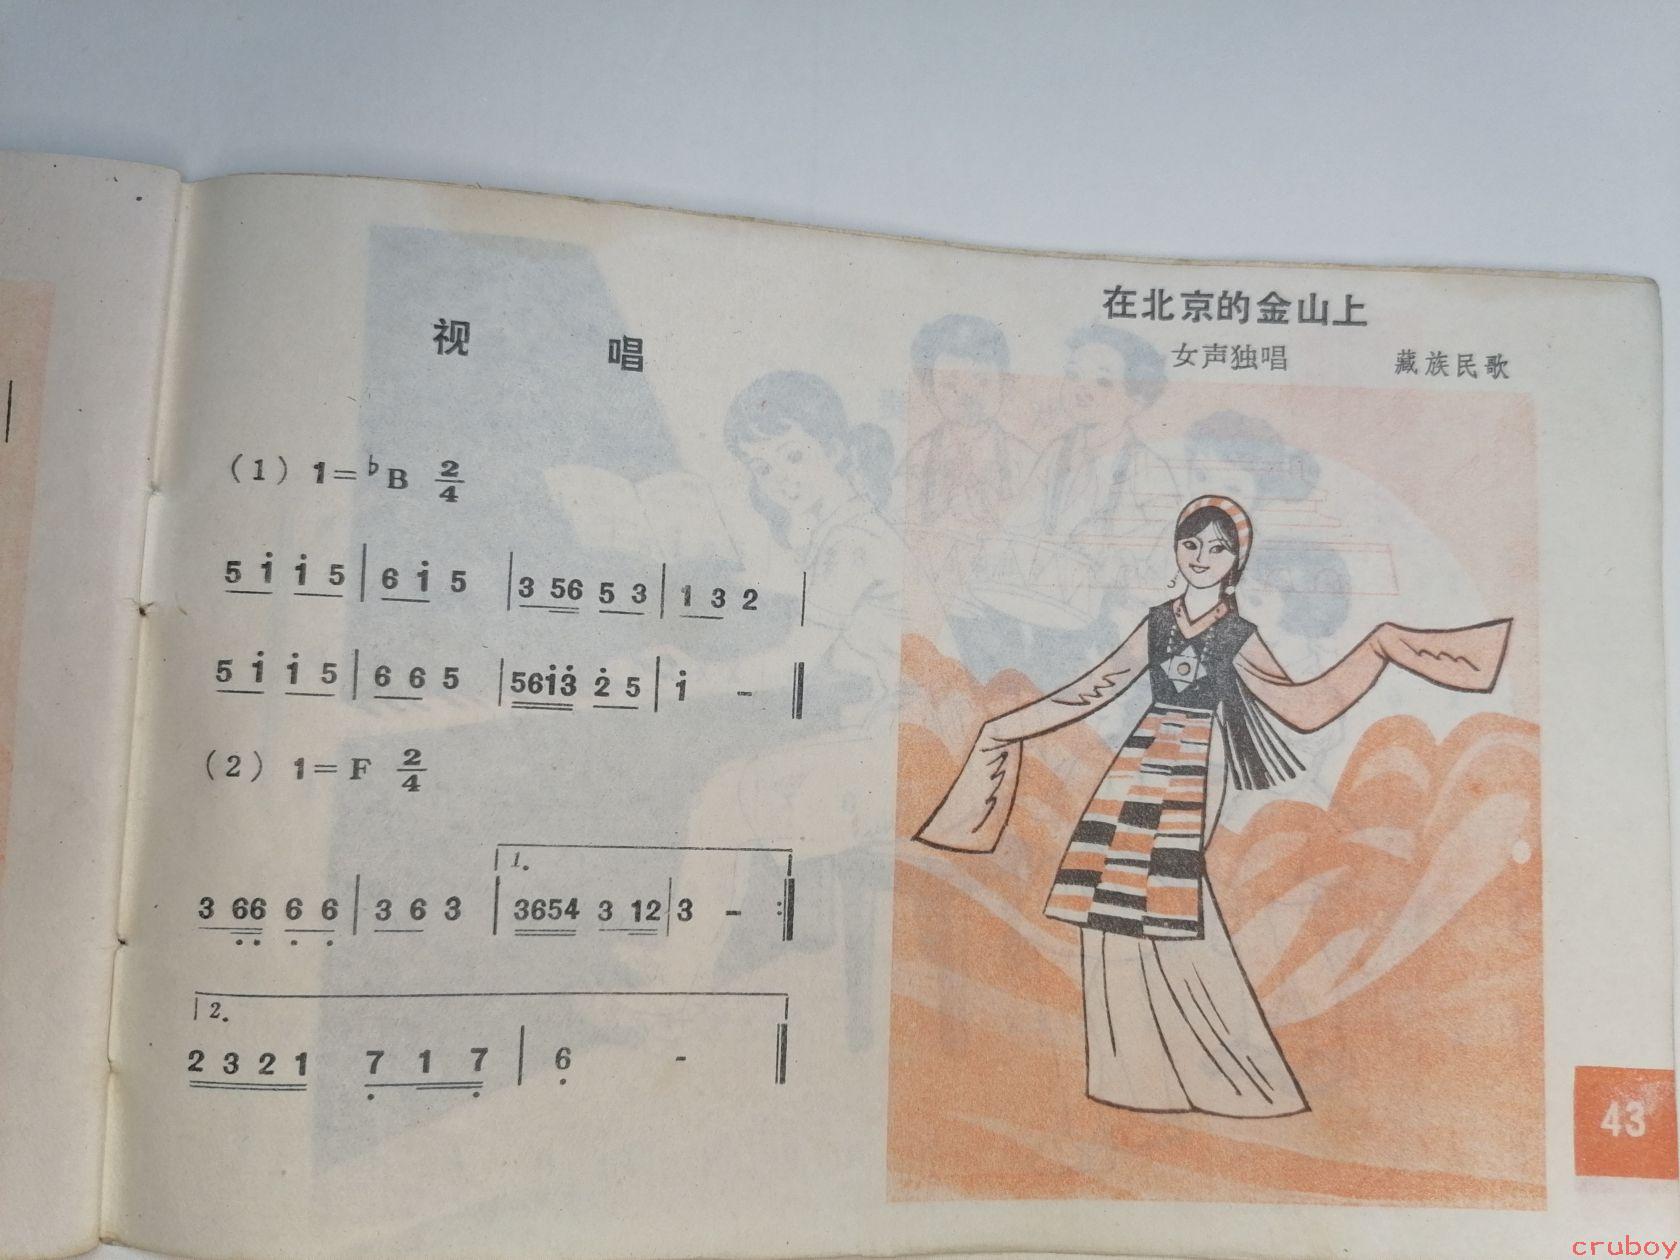 视 唱
（1） 1=♭B 2/4
5 1̇ 1̇ 5 | 6 1̇ 5 | 3 56 5 3 | 1 3 2 |
5 1̇ 1̇ 5 | 6 6 5 | 561̇3̇ 2̇ 5 | 1̇ - ‖
（2） 1=F 2/4
1.
3 6̣6̣ 6̣ 6̣ | 3 6 3 | 3654 3 12 | 3 - :‖
2.
2 3 2 1 7̣ 1 7̣ | 6̣ - ‖
在北京的金山上
女声独唱 藏族民歌
43
cruboy